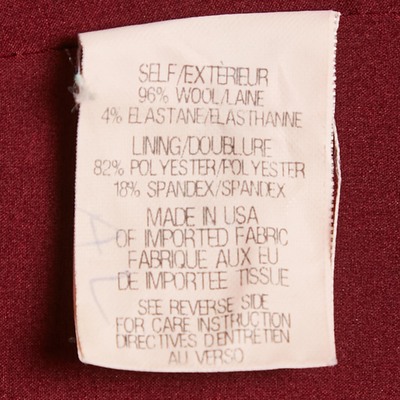 SELF/EXTÉRIEUR
96% WOOL/LAINE
4% ELASTANE/ELASTHANNE
LINING/DOUBLURE
82% POLYESTER/POLYESTER
18% SPANDEX/SPANDEX
MADE IN USA
OF IMPORTED FABRIC
FABRIQUE AUX EU
DE IMPORTEE TISSUE
SEE REVERSE SIDE
FOR CARE INSTRUCTION
DIRECTIVES D'ENTRETIEN
AU VERSO